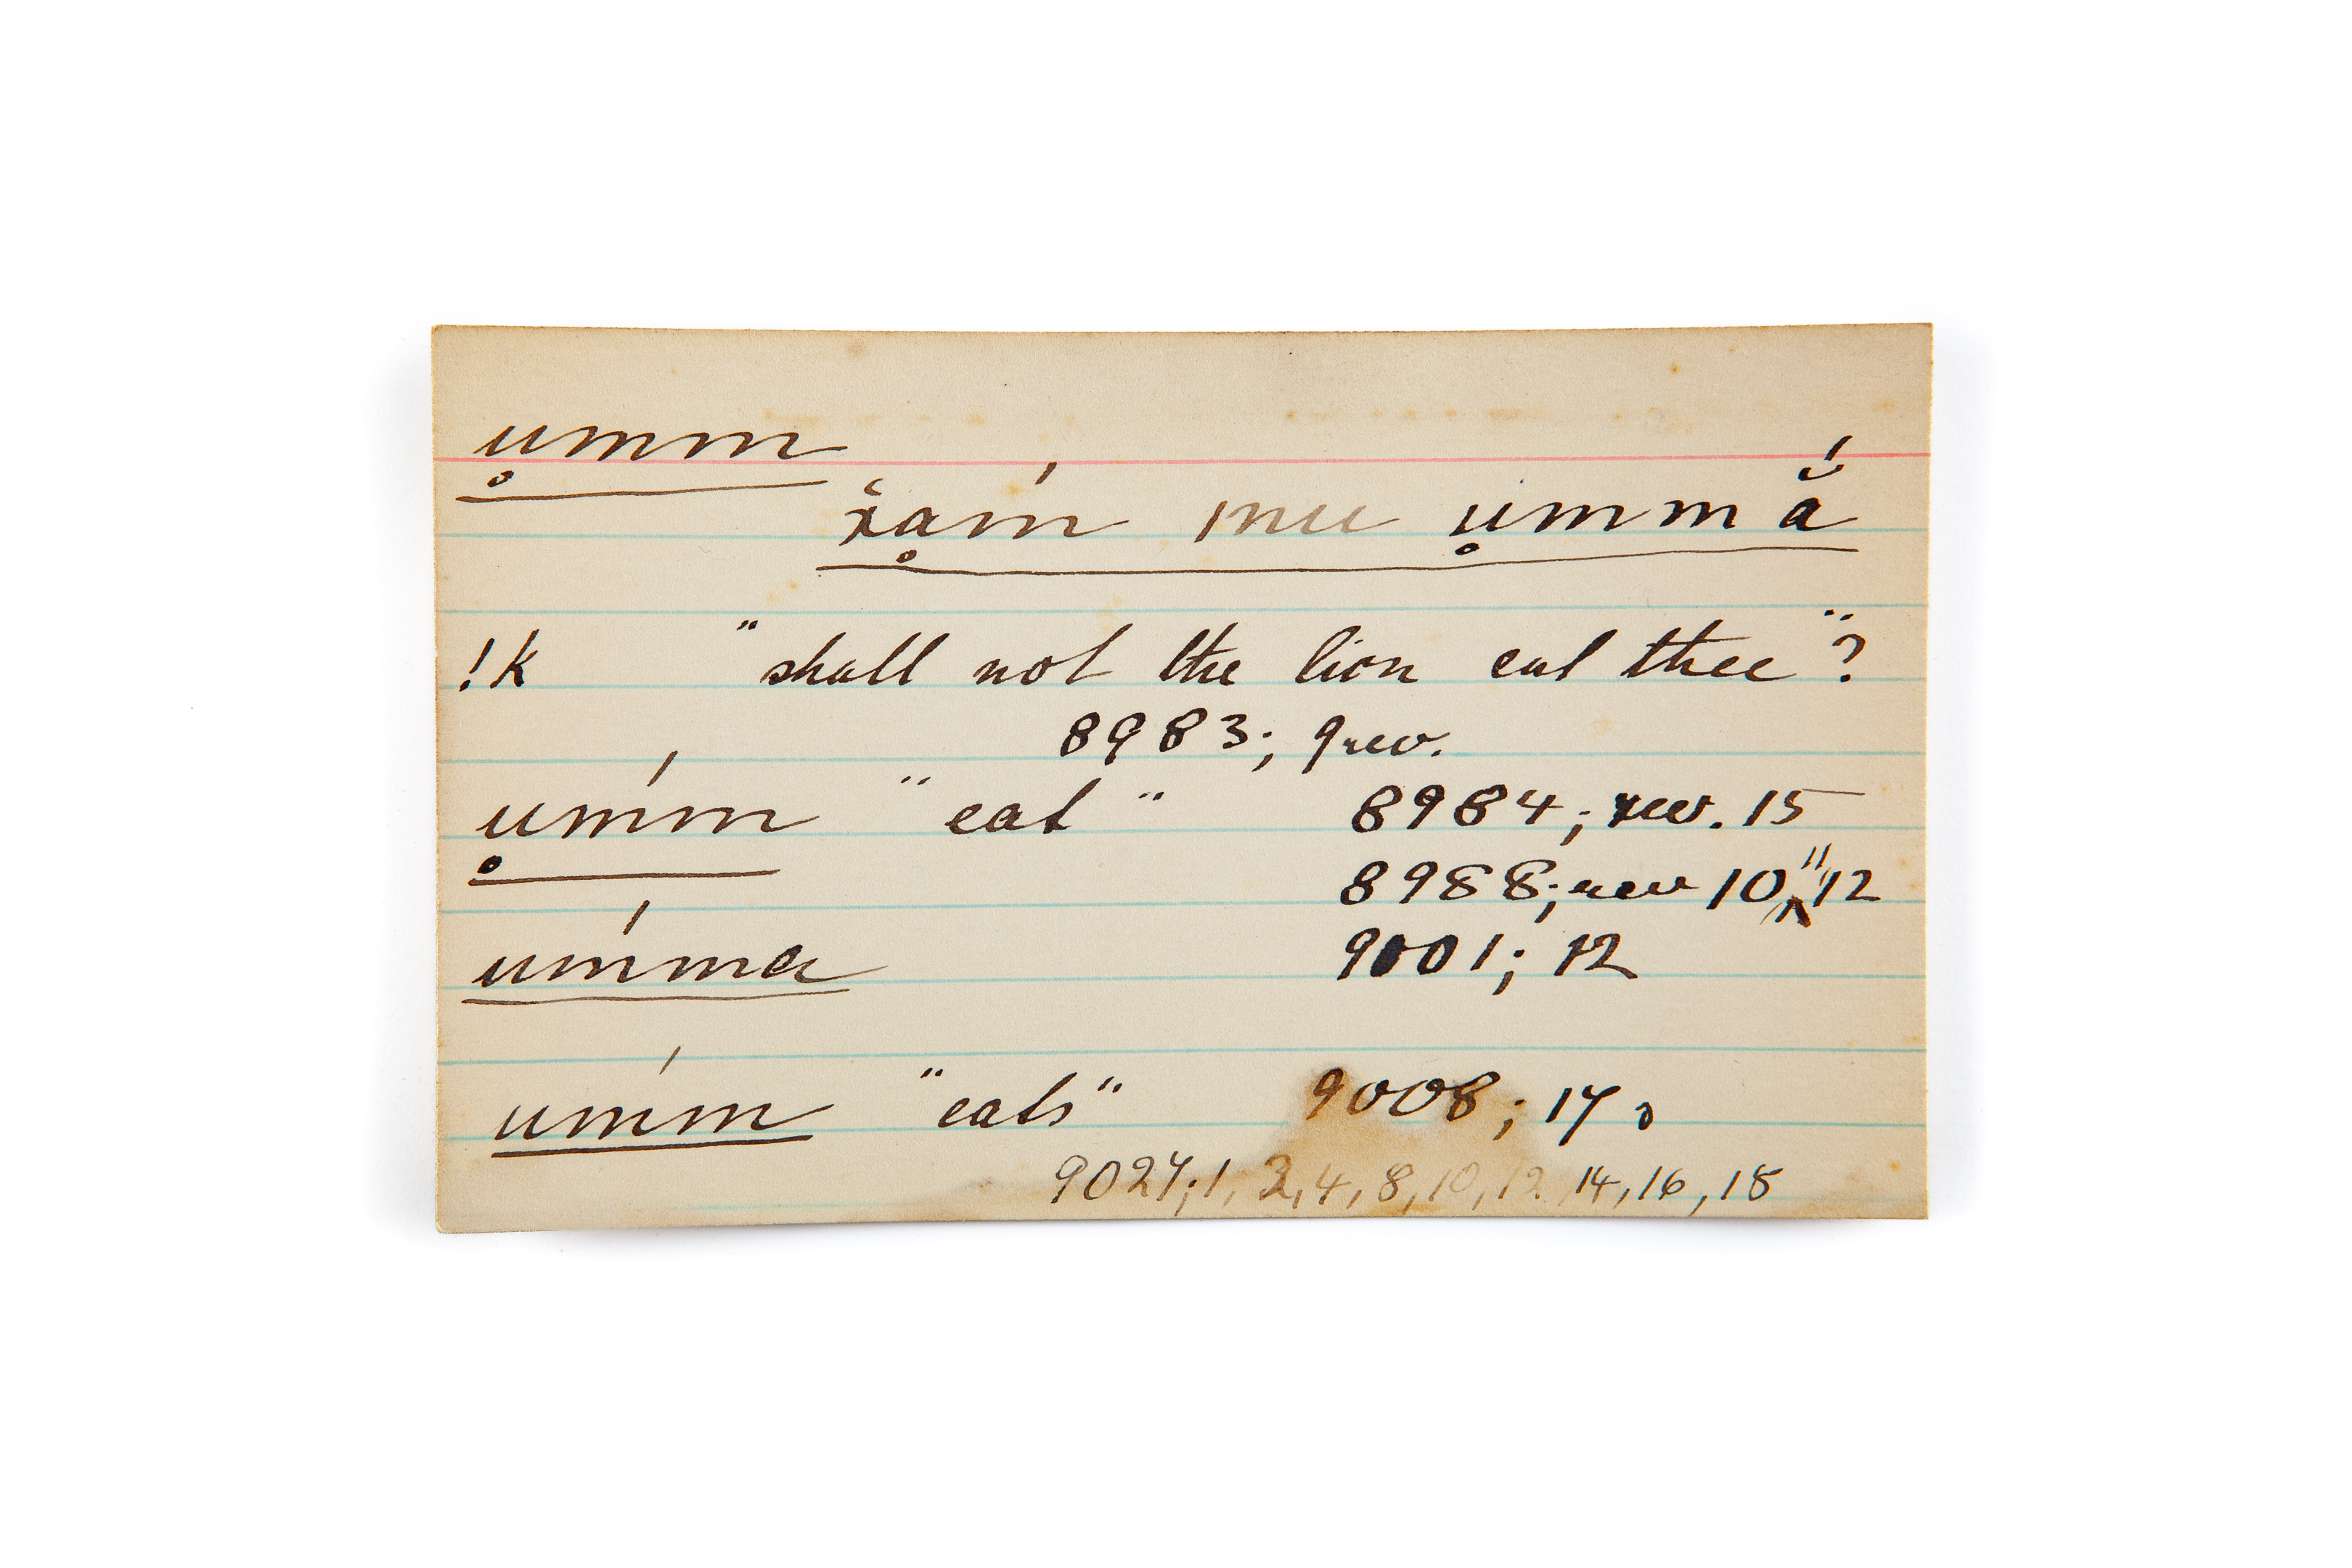 u̥mm
χ̆ḁḿ mu u̥mmắ
!k "shall not the lion eat thee"?
8983; 9 rev.
u̥ḿm "eat" 8984; rev. 15
8988; rev 10, 11, 12
uḿma 9001; 12
uḿm "eats" 9008; 17
9027; 1, 2, 4, 8, 10, 12 14, 16, 18